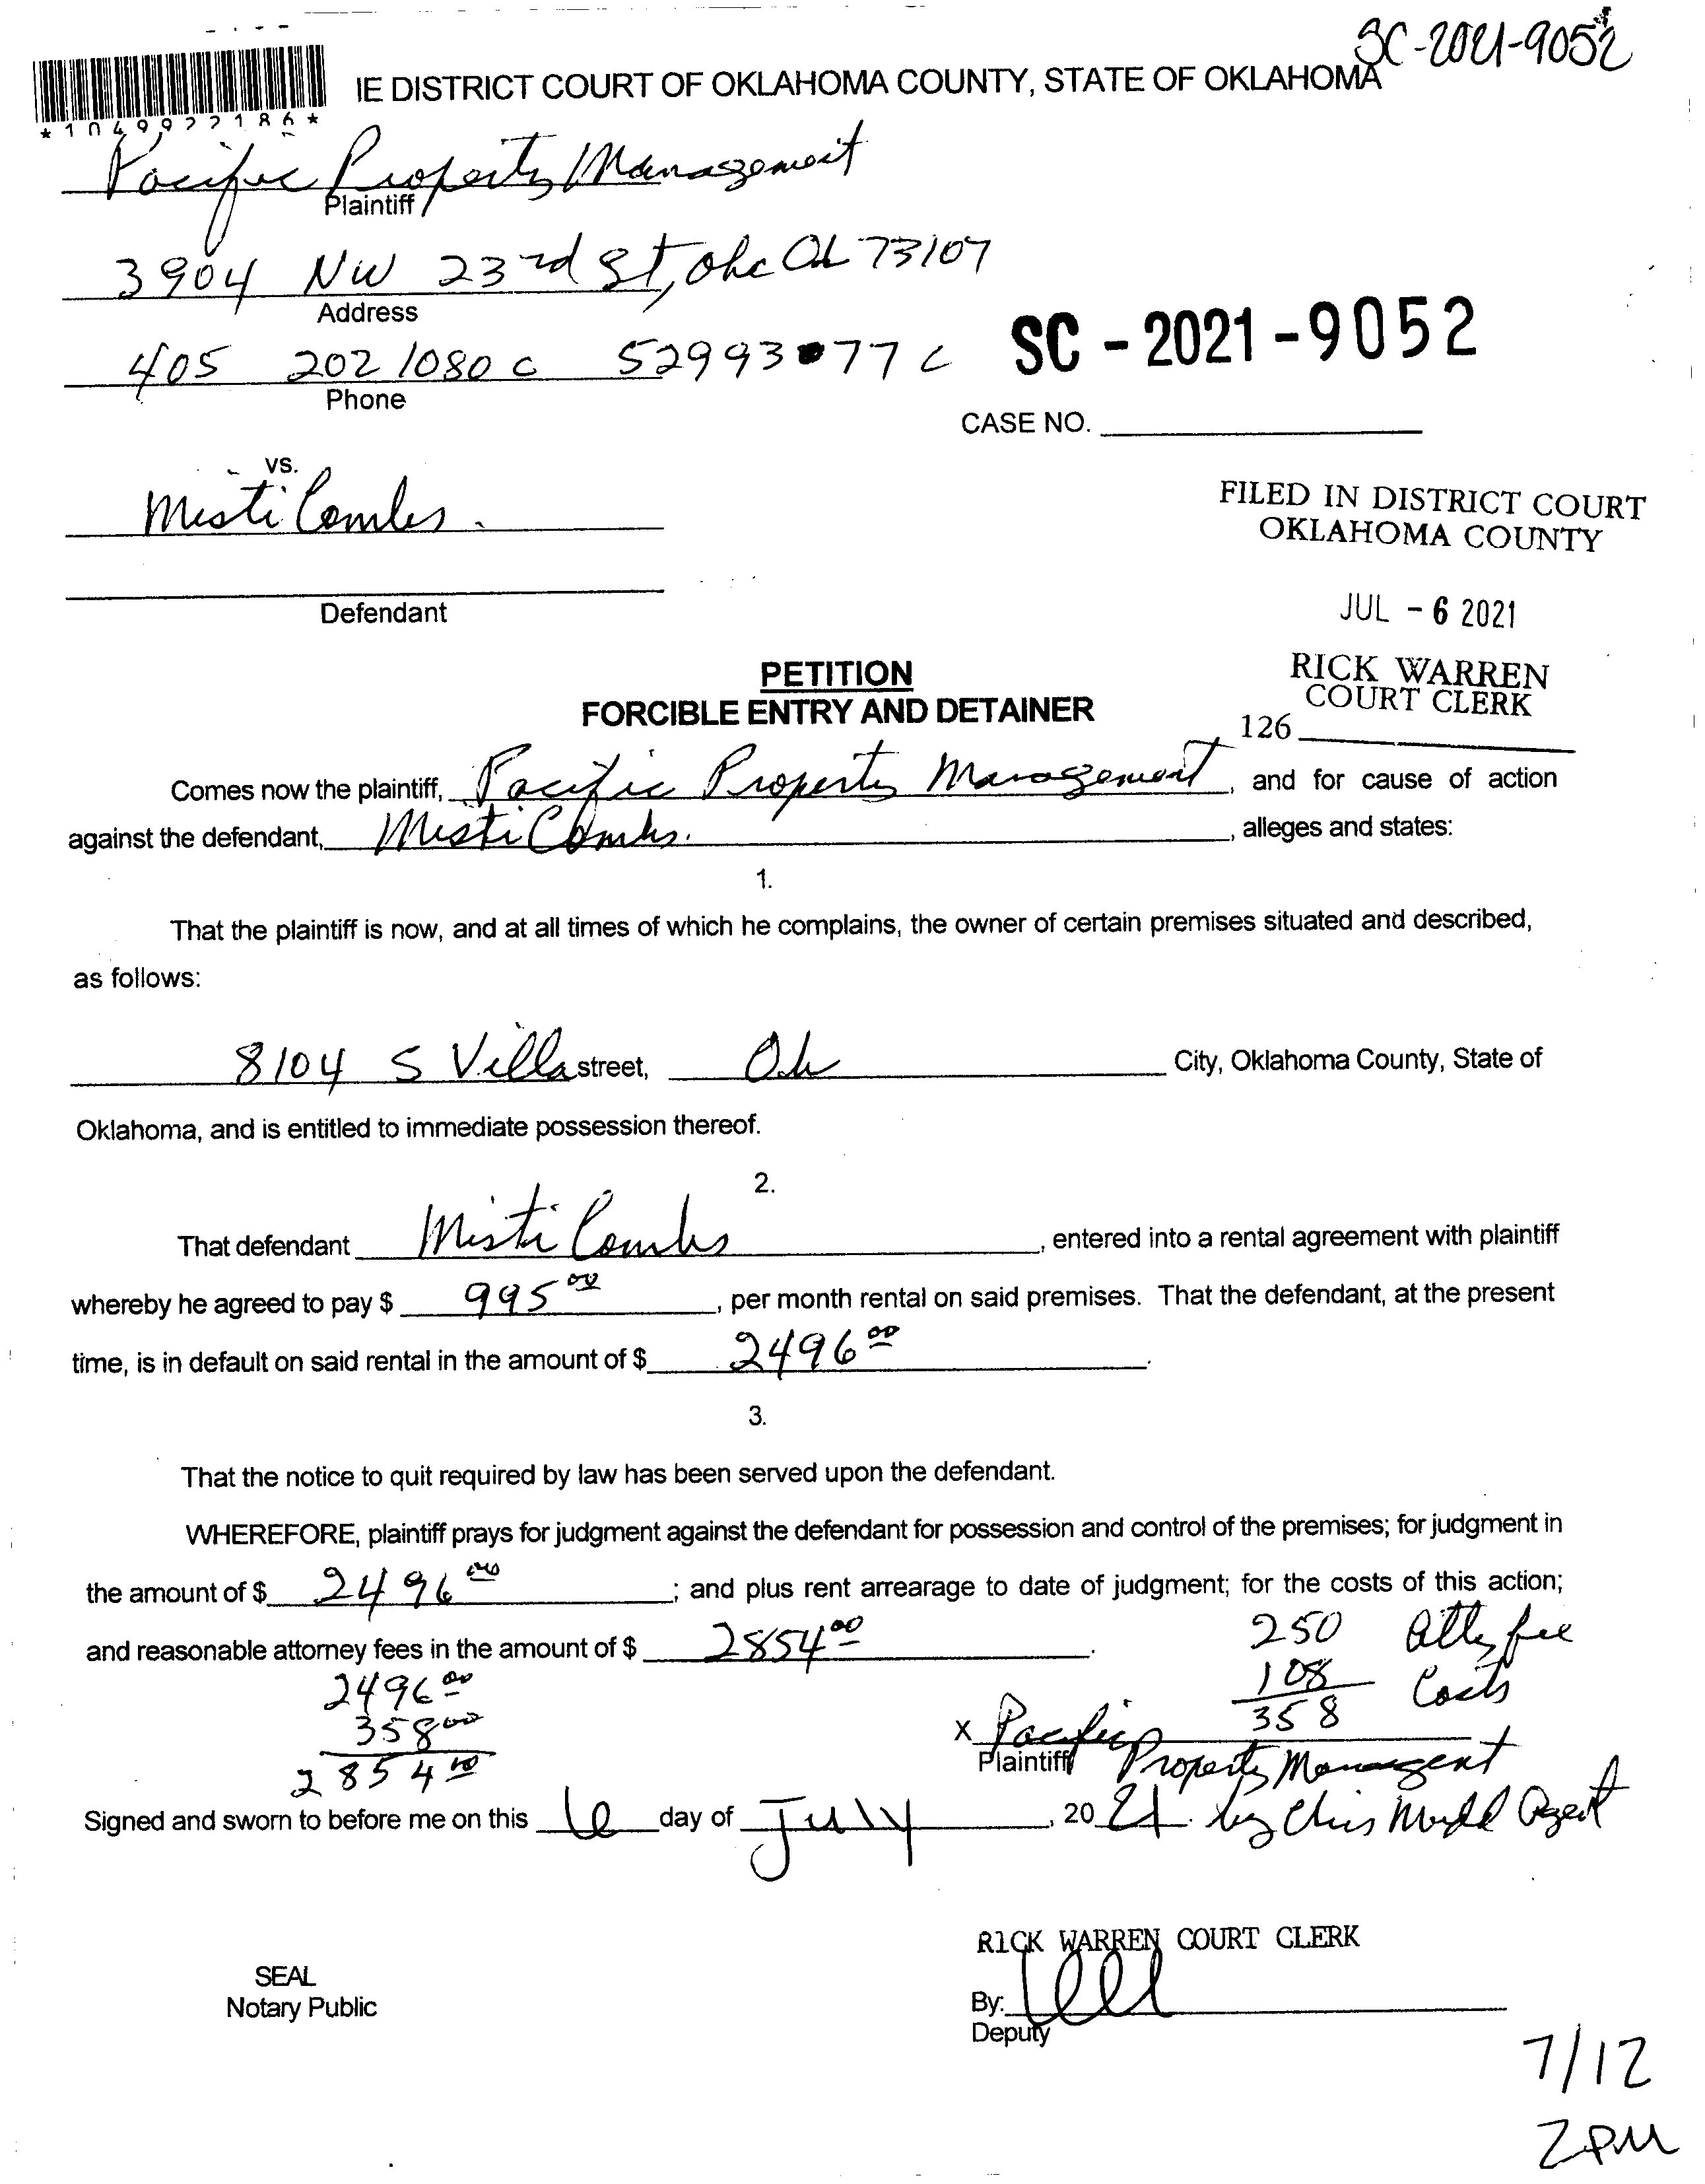 SC-2021-9052
IE DISTRICT COURT OF OKLAHOMA COUNTY, STATE OF OKLAHOMA
*1049922186*
Pacific Property Management
Plaintiff
3904 NW 23rd St, Okc Ok 73107
Address
405 202 1080 c 52993 77 c
Phone
SC - 2021 - 9052
CASE NO.
vs.
Misti Combs.
FILED IN DISTRICT COURT
OKLAHOMA COUNTY
Defendant
JUL - 6 2021
PETITION
FORCIBLE ENTRY AND DETAINER
RICK WARREN
COURT CLERK
126
Comes now the plaintiff, Pacific Property Management, and for cause of action
against the defendant, Misti Combs. , alleges and states:
1.
That the plaintiff is now, and at all times of which he complains, the owner of certain premises situated and described,
as follows:
8104 S Villa street, Ok City, Oklahoma County, State of
Oklahoma, and is entitled to immediate possession thereof.
2.
That defendant Misti Combs , entered into a rental agreement with plaintiff
whereby he agreed to pay $ 995 00 , per month rental on said premises. That the defendant, at the present
time, is in default on said rental in the amount of $ 2496 00 .
3.
That the notice to quit required by law has been served upon the defendant.
WHEREFORE, plaintiff prays for judgment against the defendant for possession and control of the premises; for judgment in
the amount of $ 2496 00 ; and plus rent arrearage to date of judgment; for the costs of this action;
and reasonable attorney fees in the amount of $ 2854 00 .
250 Atty fee
108 Costs
358
2496 00
358 00
2854 00
X Pacific
Plaintiff Property Managent
Signed and sworn to before me on this 6 day of July, 20 21. by Chris Agent
RICK WARREN COURT CLERK
SEAL
Notary Public
By:
Deputy
7/12
2PM